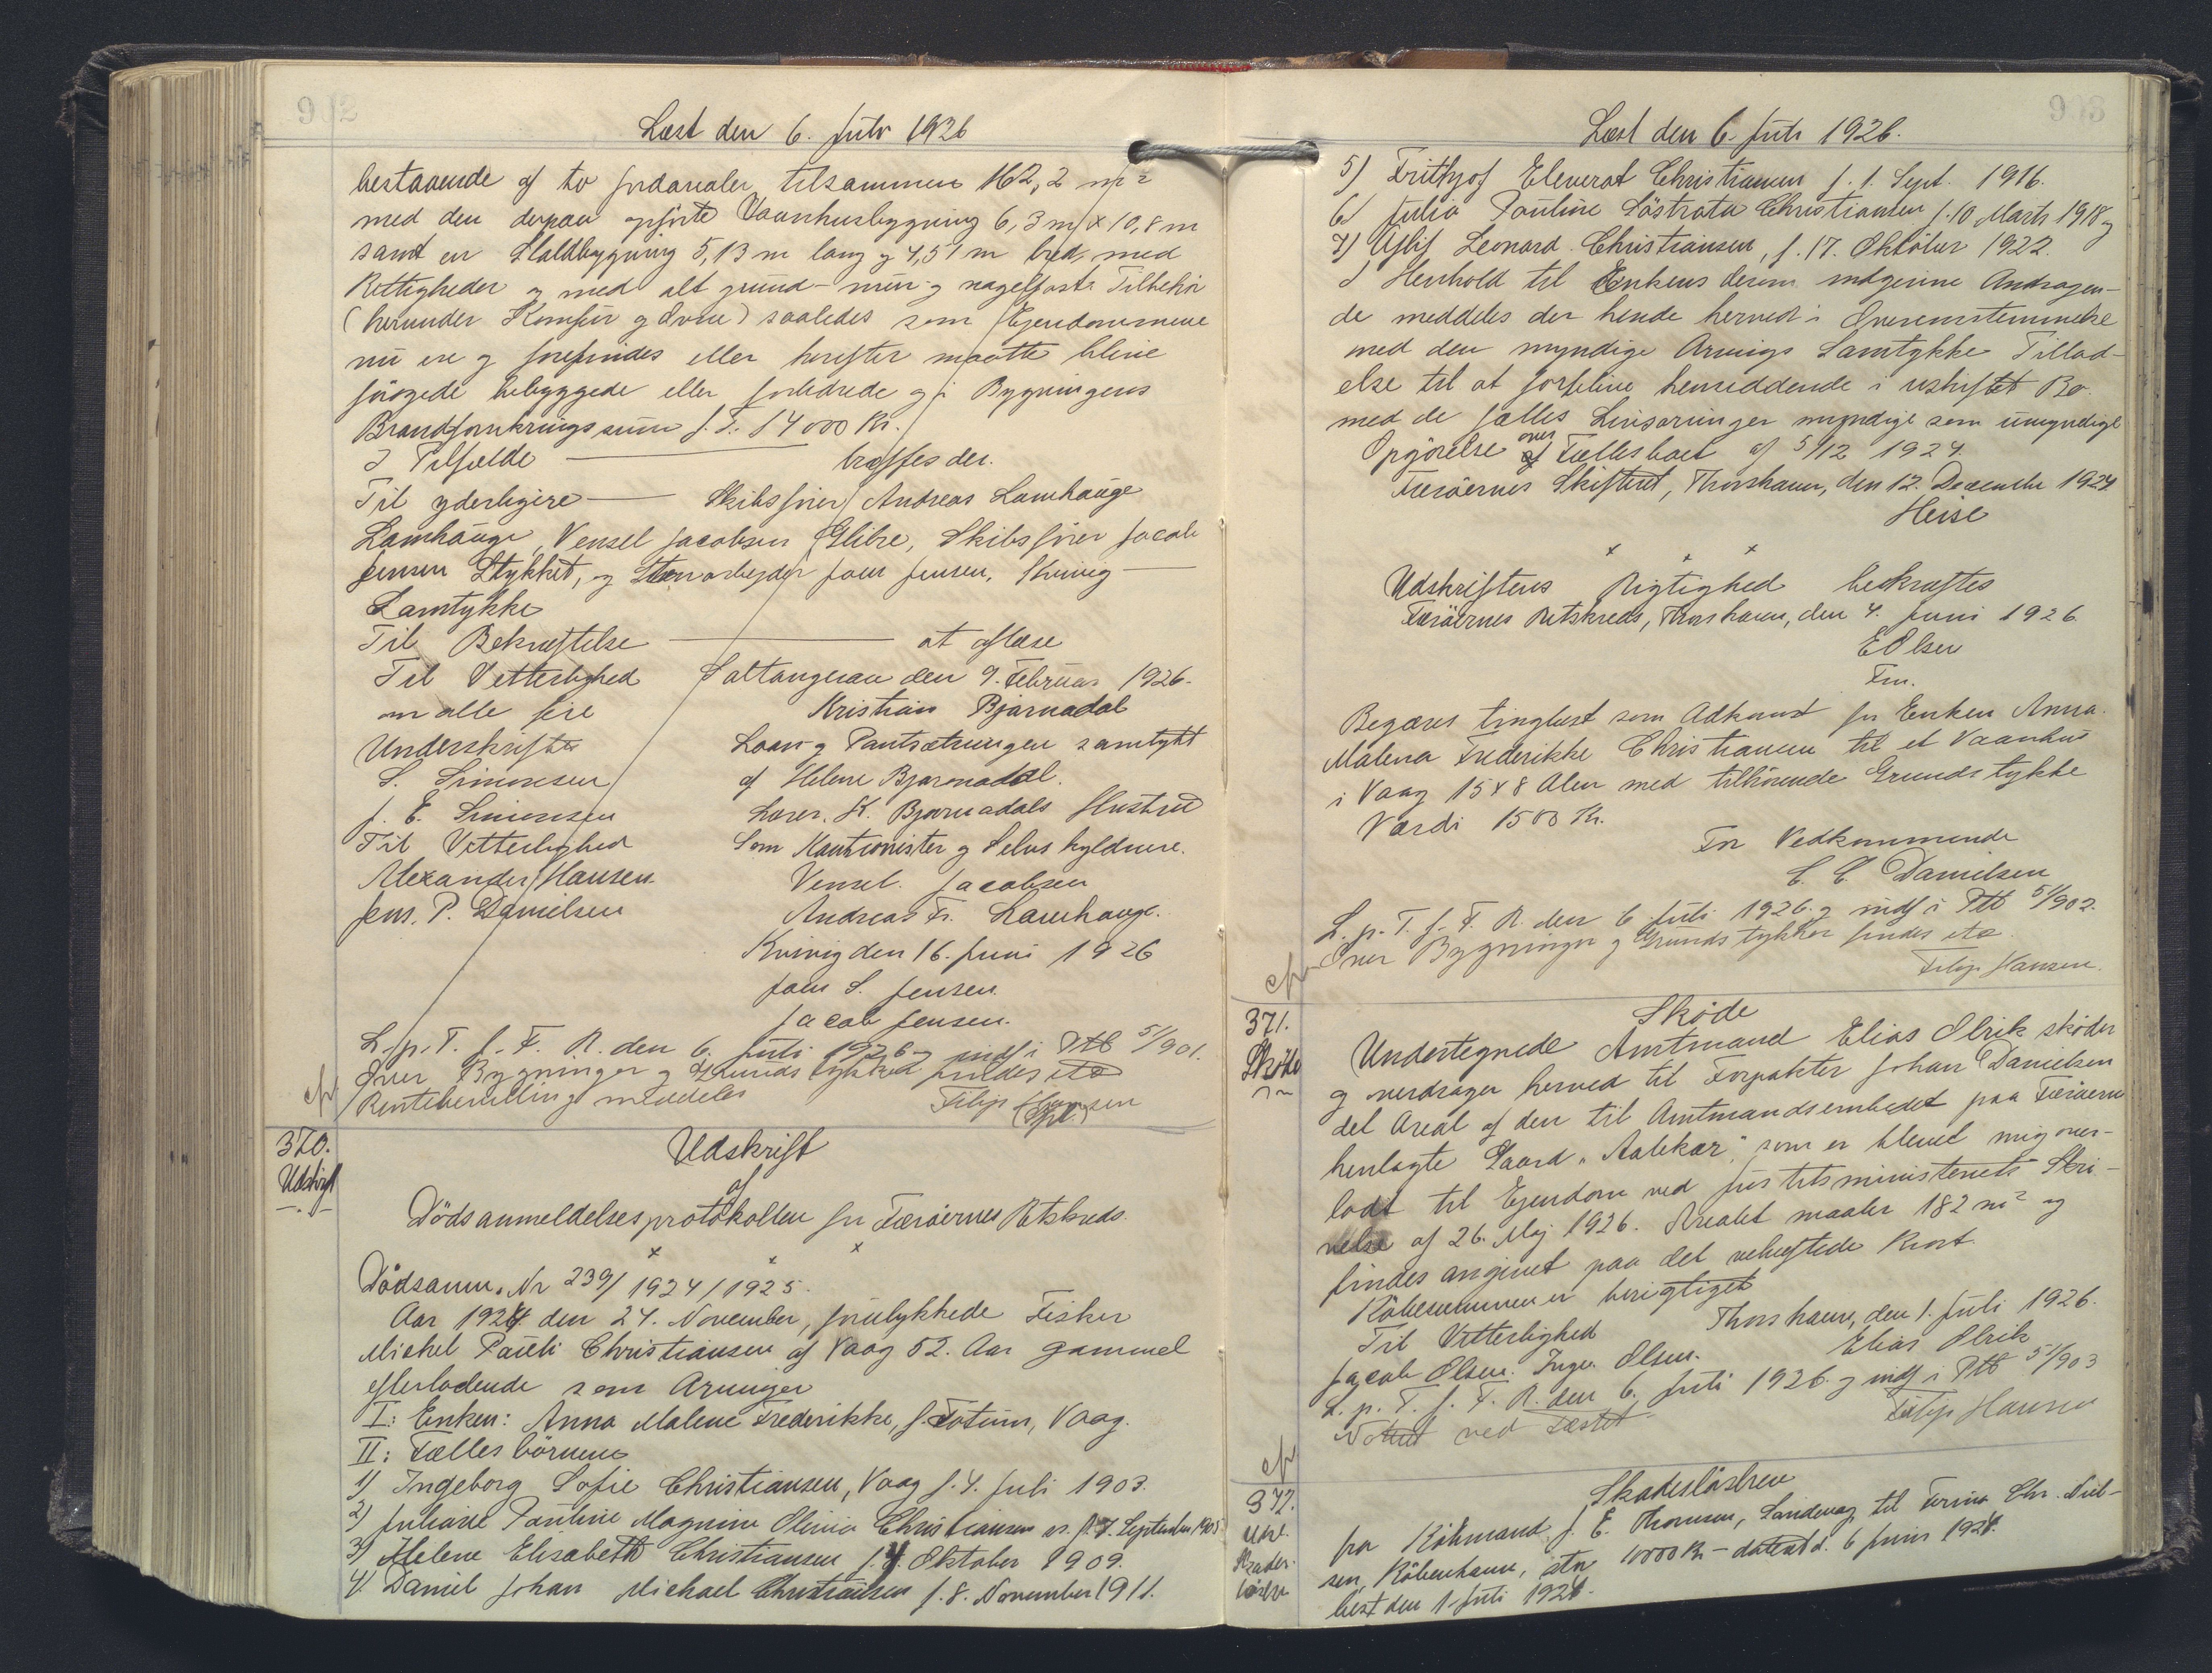 912
Læst den 6. Juli 1926
bestaaende af to Jordarealer tilsammen 162,2 m²
med den derpaa opførte Vaanhusbygning 6,3 m x 10,8 m
samt en Staldbygning 5,13 m lang og 4,51 m bred, med
Rettigheder og med alt grund- mur- og nagelfast Tilbehør
(herunder Komfur og Ovne) saaledes som Ejendommene
nu ere og forefindes eller herefter maatte blive
forøgede bebyggede eller forbedrede og i Bygningens
Brandforsikringssum f. T. 14000 Kr.
I Tilfælde — træffes der.
Til yderligere — Skibsfører Andreas Lamhauge
Lamhauge, Vensel Jacobsen Glibre, Skibsfører Jacob
Jensen Stykket, og Stenarbejder Joen Jensen, Kvivig —
Samtykke
Til Bekræftelse — at aflæse
Til Vitterlighed Saltangeraa den 9. Februar 1926.
om alle fire Kristian Bjarnadal
Underskrifter Laan og Pantsætningen samtykt
S. Simonsen af Helene Bjarnadal.
J. E. Simonsen Lærer K. Bjarnadals Hustru
Til Vitterlighed Som Kautionister og Selvskyldnere.
Alexander Hansen Vensel Jacobsen
Jens. P. Danielsen Andreas Fr. Lamhauge.
Kvivig den 16. Juni 1926
Joen S. Jensen.
Jacob Jensen.
L. p. T. f. F. R. den 6. Juli 1926 og indf i Ptb 51/901.
Over Bygninger og Grundstykket findes ito
Rentebevilling meddeles Filip Hansen
(Spl.)
370.
Udskrift
Udskrift
af
Dödsanmeldelsesprotokollen for Færöernes Retskreds.
x x x
Dödsanm. Nr 239/1924/1925.
Aar 1924 den 24. November, forulykkede Fisker
Michel Pauli Christiansen af Vaag 52. Aar gammel
efterladende som Arvinger
I: Enken: Anna Malene Frederikke, f. Fotum, Vaag.
II: Fælles börnene
1) Ingeborg Sofie Christiansen, Vaag f. 4. Juli 1903.
2) Juliane Pauline Magnine Olivia Christiansen f. 7. September 1905
3) Helene Elisabeth Christiansen f. 4. Oktober 1909.
4. Daniel Johan Michael Christiansen f. 8. November 1911.
913
Læst den 6 Juli 1926.
5) Frithjof Eleverat Christiansen f. 1. Sept. 1916.
6) Julia Pauline Söstrata Christiansen f. 10 Marts 1918 og
7) Leonard Christiansen, f. 17. Oktober 1922.
I Henhold til Enkens derom indgivne Andragen-
de meddeles der hende herved i Overensstemmelse
med den myndige Arvings Samtykke Tillad-
else til at forblive hensiddende i uskiftet Bo
med de fælles Livsarvinger myndige som umyndige
Opgörelse over Fællesboet af 5/12 1924.
Færöernes Skifteret, Thorshavn, den 12. December 1924
Heise
x x x
Udskriftens Rigtighed bekræftes
Færöernes Retskreds, Thorshavn, den 4. Juni 1926.
E Olsen
Fm.
Begæres tinglæst som Adkomst for Enken Anna
Malena Frederikke Christiansen til et Vaanhus
i Vaag 15 x 8 Alen med tilhörende Grundstykke
Værdi 1500 Kr.
For Vedkommende
C. C. Danielsen
L. p. T. f. F. R. den 6. Juli 1926. og indf i Ptb 51/902.
Over Bygninger og Grundstykker findes ito
Filip Hansen.
371.
Sköde
Sköde
Undertegnede Amtmand Elias Olrik sköder
og overdrager herved til Forpakter Johan Danielsen
det Areal af den til Amtmandsembedet paa Færöerne
henlagte Gaard "Aalekær" som er blevet mig over-
ladt til Ejendom ved Justitsministeriets Skri-
velse af 26. Maj 1926. Arealet maaler 182 m² og
findes angivet paa det vehæftede Kort.
Köbesummen er berigtiget
Thorshavn, den 1. Juli 1926.
Til Vitterlighed Elias Olrik
Jacob Olsen. Inger Olsen.
L. p. T. f. F. R. den 6. Juli 1926. og indf i Ptb 51/903
Noteret ved Fæstet Filip Hansen
372.
Skadeslösbrev
fra Köbmand J. E. Thomsen, Sandevaag til Firma Chr. Niel-
sen, Köbenhavn, stor 10000 Kr — dateret d. 6 Juni 1924.
læst den 1. Juli 1924.